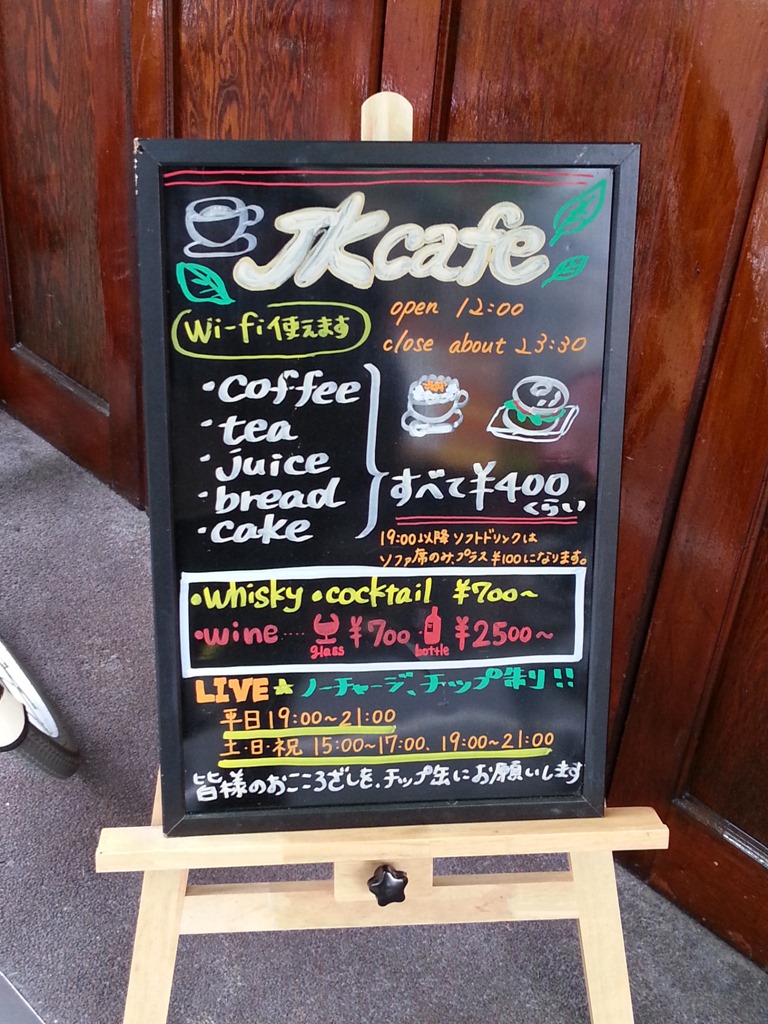 JK cafe
Wi-fi使えます
open 12:00
close about 23:30
・coffee
・tea
・juice
・bread
・cake
すべて¥400
くらい
19:00以降ソフトドリンクは
ソファ席のみプラス¥100になります。
・whisky・cocktail ¥700~
・wine····
glass
¥700
bottle
¥2500~
LIVE★ノーチャージ、チップ制り!!
平日19:00~21:00
土・日・祝 15:00~17:00、19:00~21:00
皆様のおこころざしを、チップ缶にお願いします